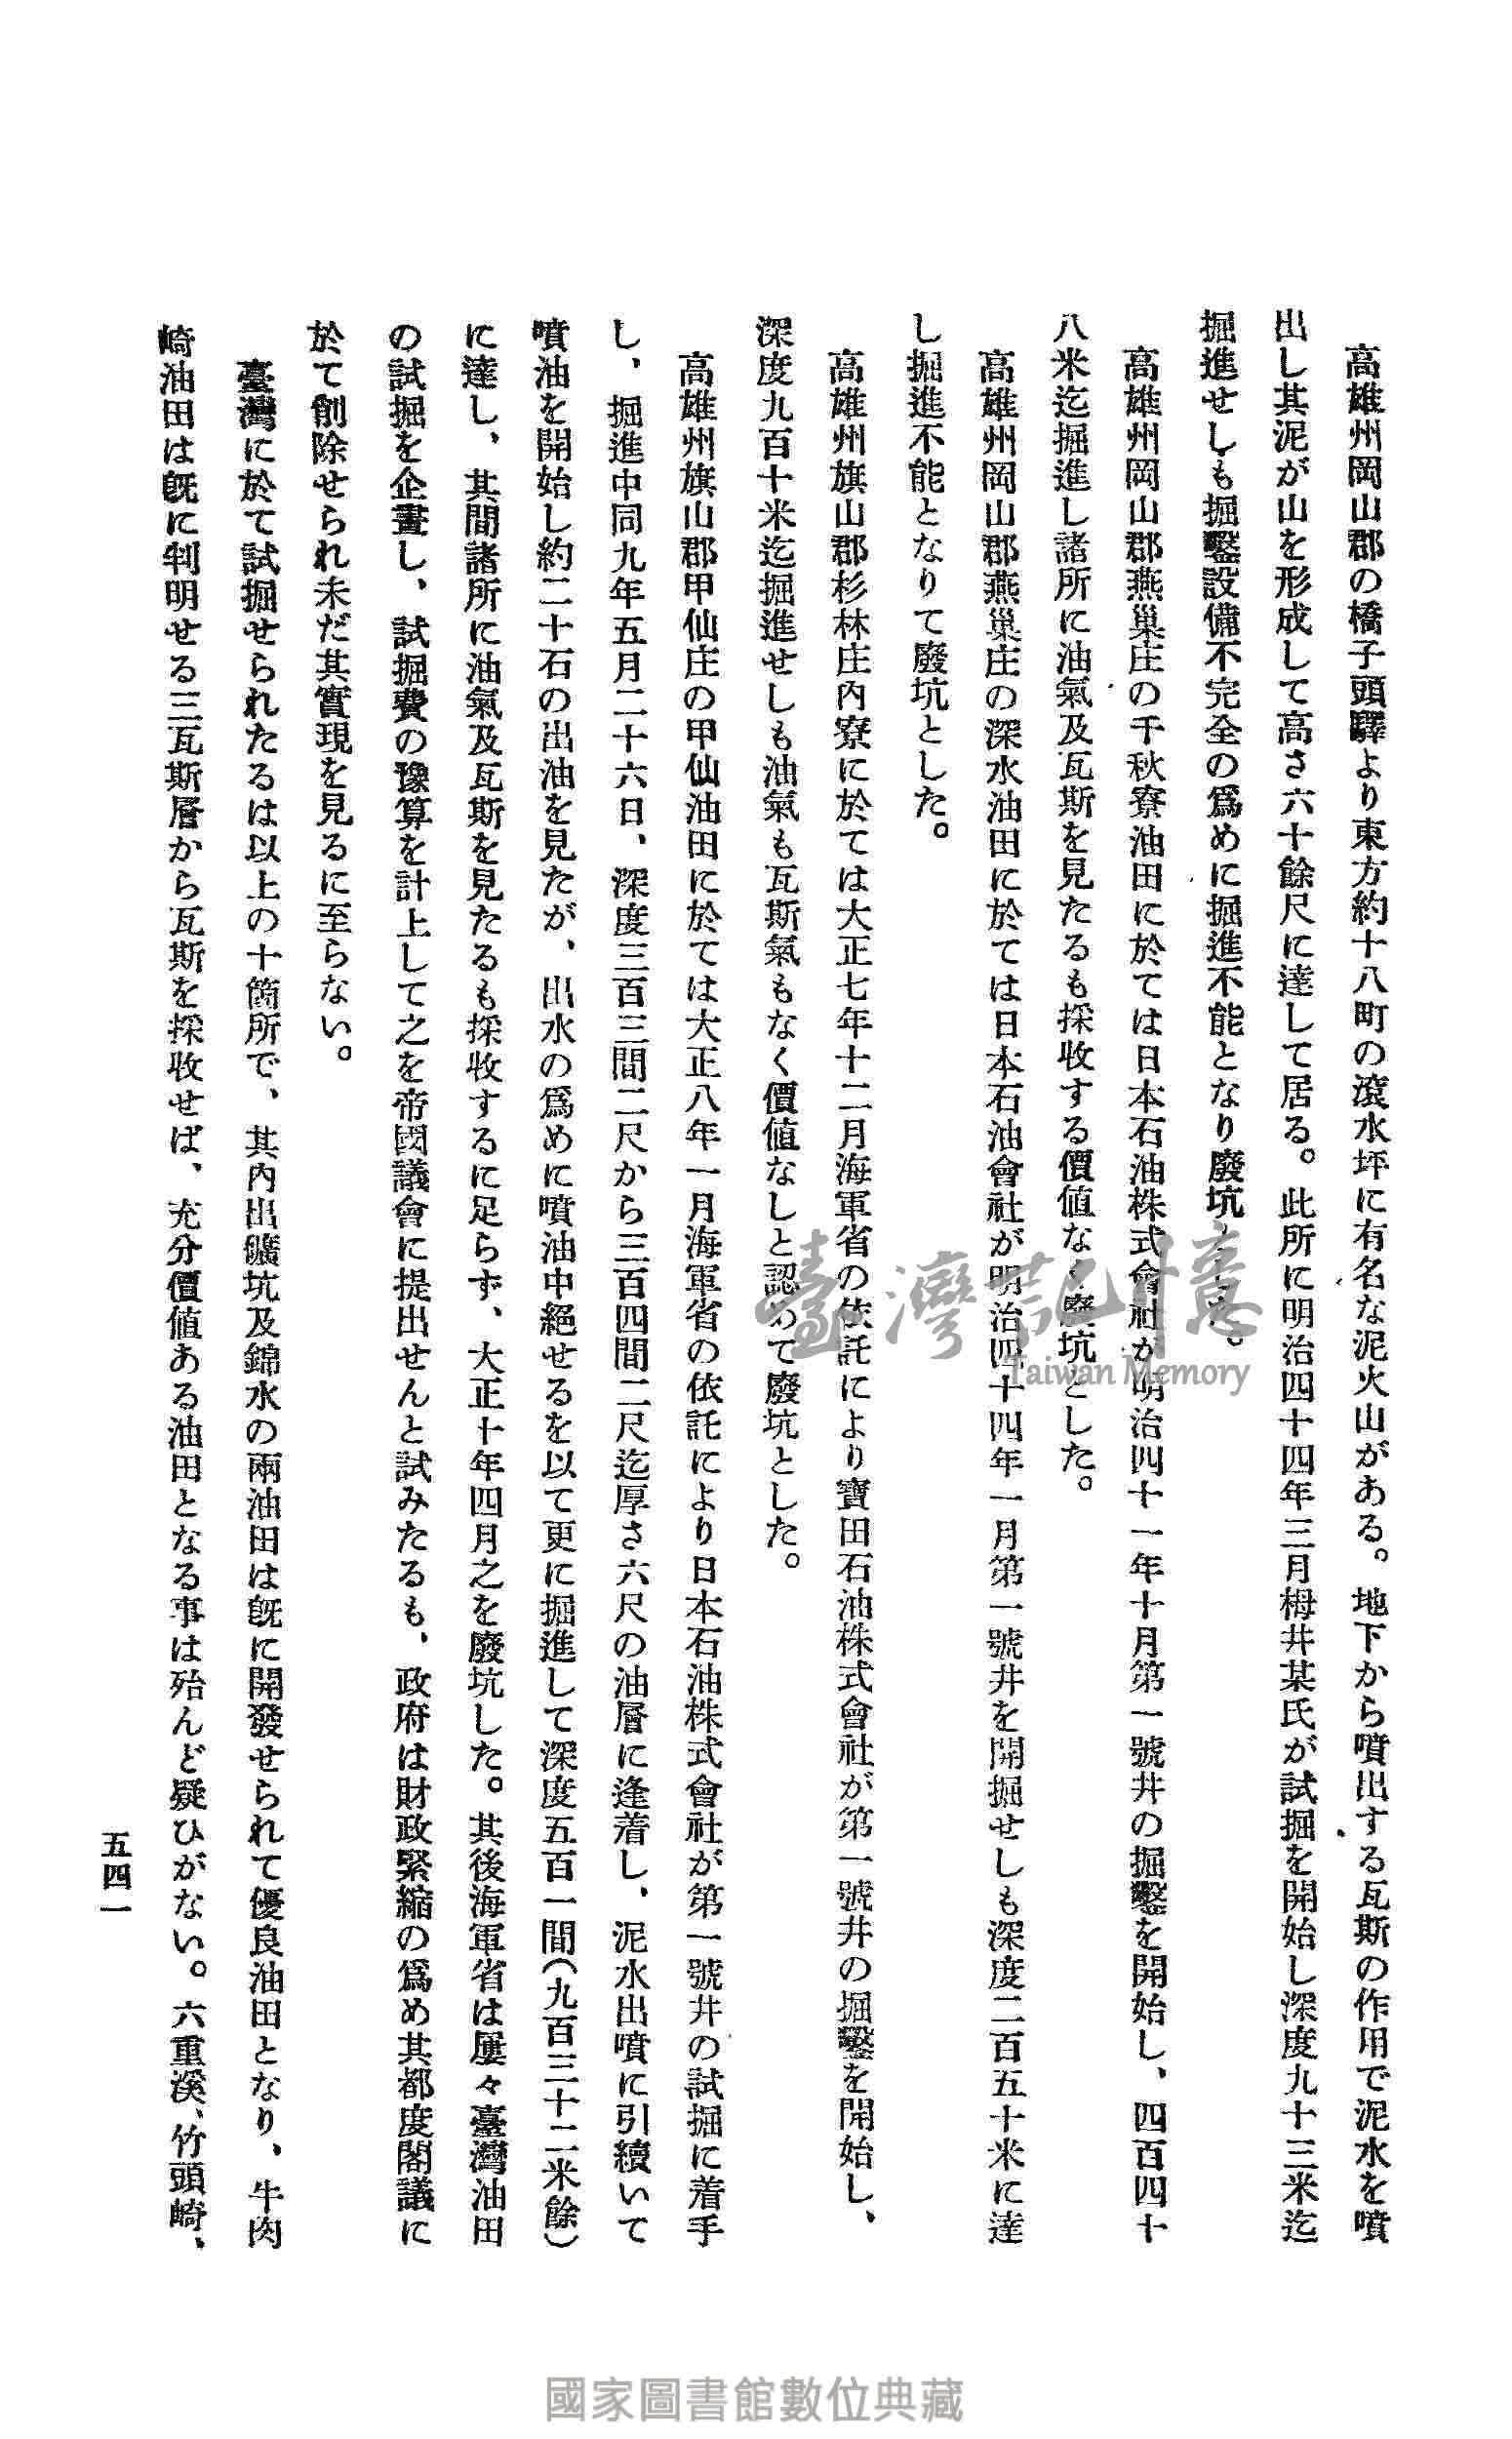 高雄州岡山郡の橋子頭驛より東方約十八町の滾水坪に有名な泥火山がある。地下から噴出する瓦斯の作用で泥水を噴
出し其泥が山を形成して高さ六十餘尺に達して居る。此所に明治四十四年三月栂井某氏が試掘を開始し深度九十三米迄
掘進せしも掘鑿設備不完全の爲めに掘進不能となり廢坑とした。
高雄州岡山郡燕巢庄の千秋寮油田に於ては日本石油株式會社が明治四十一年十月第一號井の掘鑿を開始し、四百四十
八米迄掘進し諸所に油氣及瓦斯を見たるも採收する價値なく廢坑とした。
高雄州岡山郡燕巢庄の深水油田に於ては日本石油會社が明治四十四年一月第一號井を開掘せしも深度二百五十米に達
し掘進不能となりて廢坑とした。
高雄州旗山郡杉林庄內寮に於ては大正七年十二月海軍省の依託により寶田石油株式會社が第一號井の掘鑿を開始し、
深度九百十米迄掘進せしも油氣も瓦斯氣もなく價値なしと認めて廢坑とした。
高雄州旗山郡甲仙庄の甲仙油田に於ては大正八年一月海軍省の依託により日本石油株式會社が第一號井の試掘に着手
し、掘進中同九年五月二十六日、深度三百三間二尺から三百四間二尺迄厚さ六尺の油層に逢着し、泥水出噴に引續いて
噴油を開始し約二十石の出油を見たが、出水の爲めに噴油中絕せるを以て更に掘進して深度五百一間(九百三十二米餘)
に達し、其間諸所に油氣及瓦斯を見たるも採收するに足らず、大正十年四月之を廢坑した。其後海軍省は屢々臺灣油田
の試掘を企畫し、試掘費の豫算を計上して之を帝國議會に提出せんと試みたるも、政府は財政緊縮の爲め其都度閣議に
於て削除せられ未だ其實現を見るに至らない。
臺灣に於て試掘せられたるは以上の十箇所で、其內出礦坑及錦水の兩油田は旣に開發せられて優良油田となり、牛肉
崎油田は旣に判明せる三瓦斯層から瓦斯を採收せば、充分價値ある油田となる事は殆んど疑ひがない。六重溪、竹頭崎、
五四一
臺灣記憶
Taiwan Memory
國家圖書館數位典藏